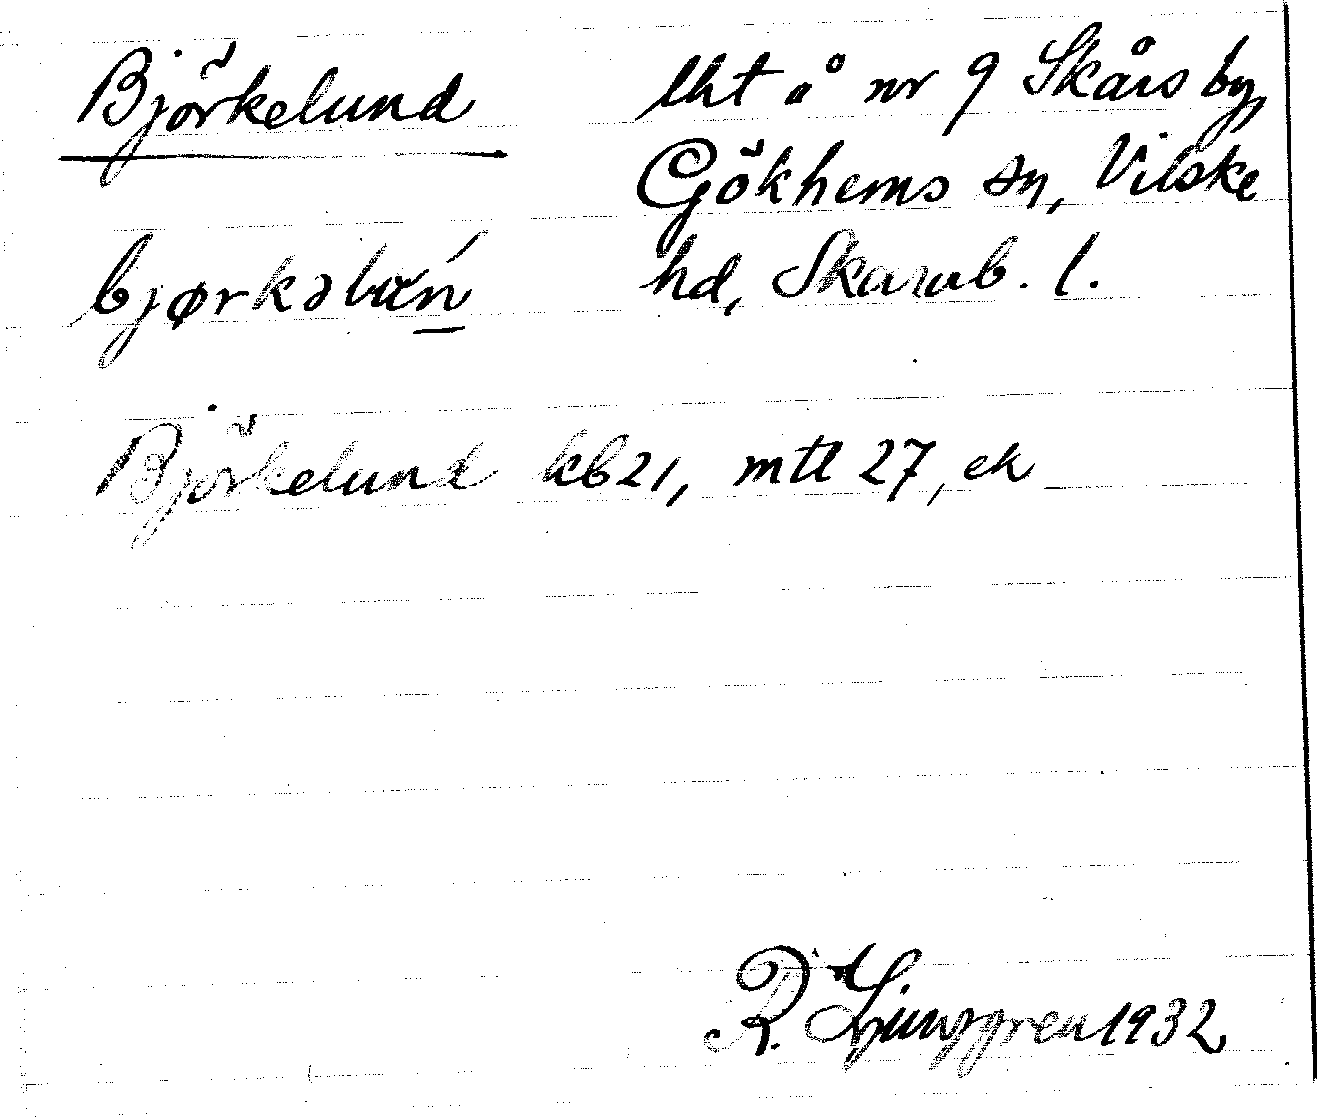 Björkelund
lht å nr 9 Skårs by,
Gökhems sn, Vilske
hd, Skarab. l.
Björkelund kb 21, mtl 27, ek
R. Ljunggren 1932